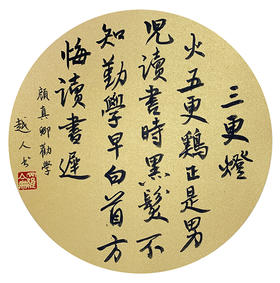 三更燈
火五更鷄正是男
兒讀書時黑髮不
知勤學早白首方
悔讀書遲
顔真卿勸學
越人书